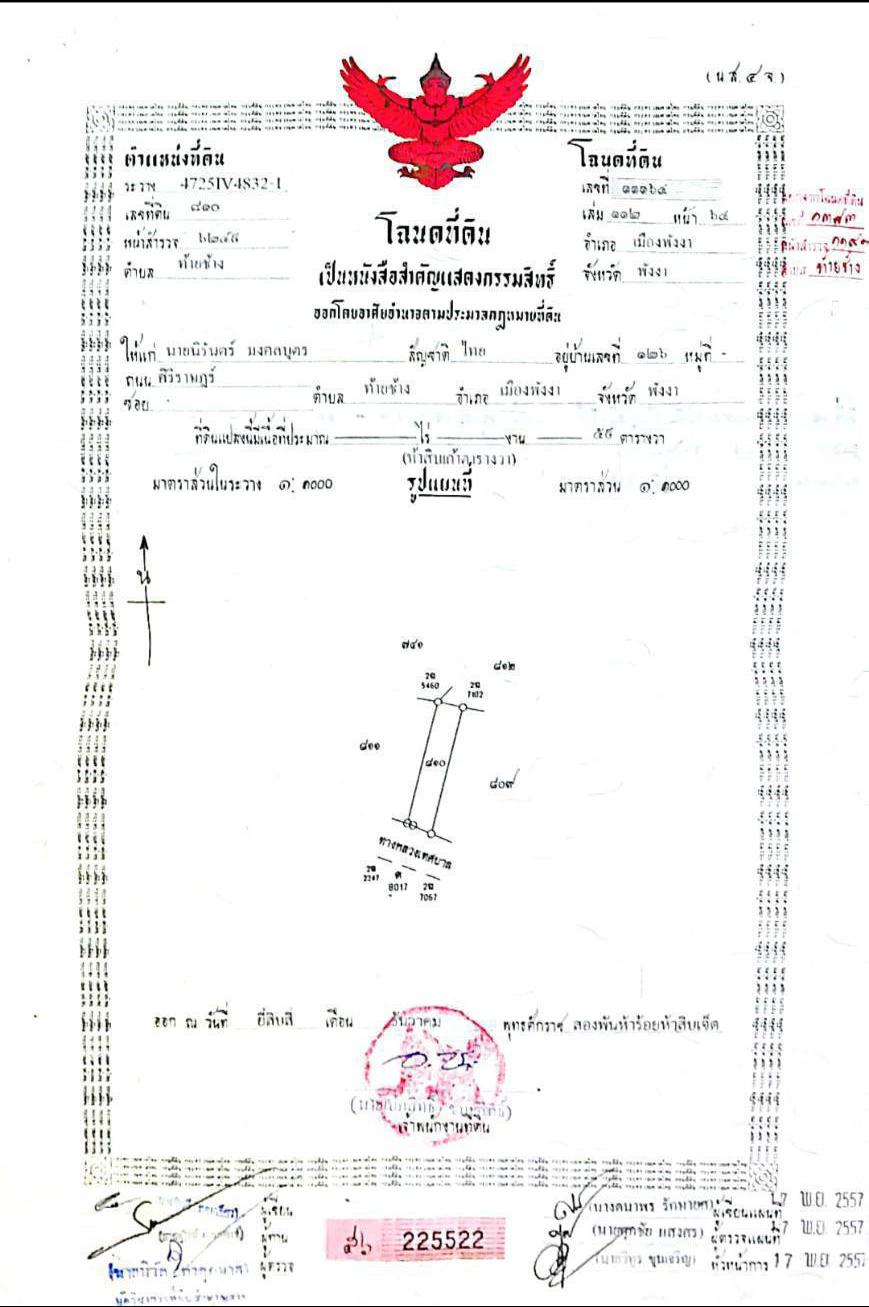 (น.ส. ๔ จ.)
ตำแหน่งที่ดิน
ระวาง 4725IV4832-1
เลขที่ดิน ๘๑๐
หน้าสำรวจ
ตำบล ท้ายช้าง
โฉนดที่ดิน
เลขที่ ๑๑๑๖๔
เล่ม ๑๑๒ หน้า ๖๔
อำเภอ เมืองพังงา
จังหวัด พังงา
ท้ายช้าง
โฉนดที่ดิน
เป็นหนังสือสำคัญแสดงกรรมสิทธิ์
ออกโดยอาศัยอำนาจตามประมวลกฎหมายที่ดิน
ให้แก่ นายนิรันดร์ มงคลบุตร สัญชาติ ไทย อยู่บ้านเลขที่ ๑๒๖ หมู่ที่ -
ถนน ศิริราษฎร์
ซอย ตำบล ท้ายช้าง อำเภอ เมืองพังงา จังหวัด พังงา
ที่ดินแปลงนี้มีเนื้อที่ประมาณ ไร่ งาน ๕๙ ตารางวา
(ห้าสิบเก้าตารางวา)
มาตราส่วนในระวาง ๑: ๑๐๐๐ รูปแผนที่ มาตราส่วน ๑: ๑๐๐๐
น
๗๔๑
๘๑๒
2ฌ
5460
2ฌ
7102
๘๑๑
๘๑๐
๘๐๙
ทางหลวงเทศบาล
2ฌ
2247
ด
8017
2ฌ
7067
ออก ณ วันที่ ยี่สิบสี่ เดือน ธันวาคม พุทธศักราช สองพันห้าร้อยห้าสิบเจ็ด
เจ้าพนักงานที่ดิน
ผู้เขียน
ผู้ทาน
ผู้ตรวจ
225522
ผู้เขียนแผนที่ 17 พ.ย. 2557
ผู้ตรวจแผนที่ 17 พ.ย. 2557
หัวหน้าการ 17 พ.ย. 2557